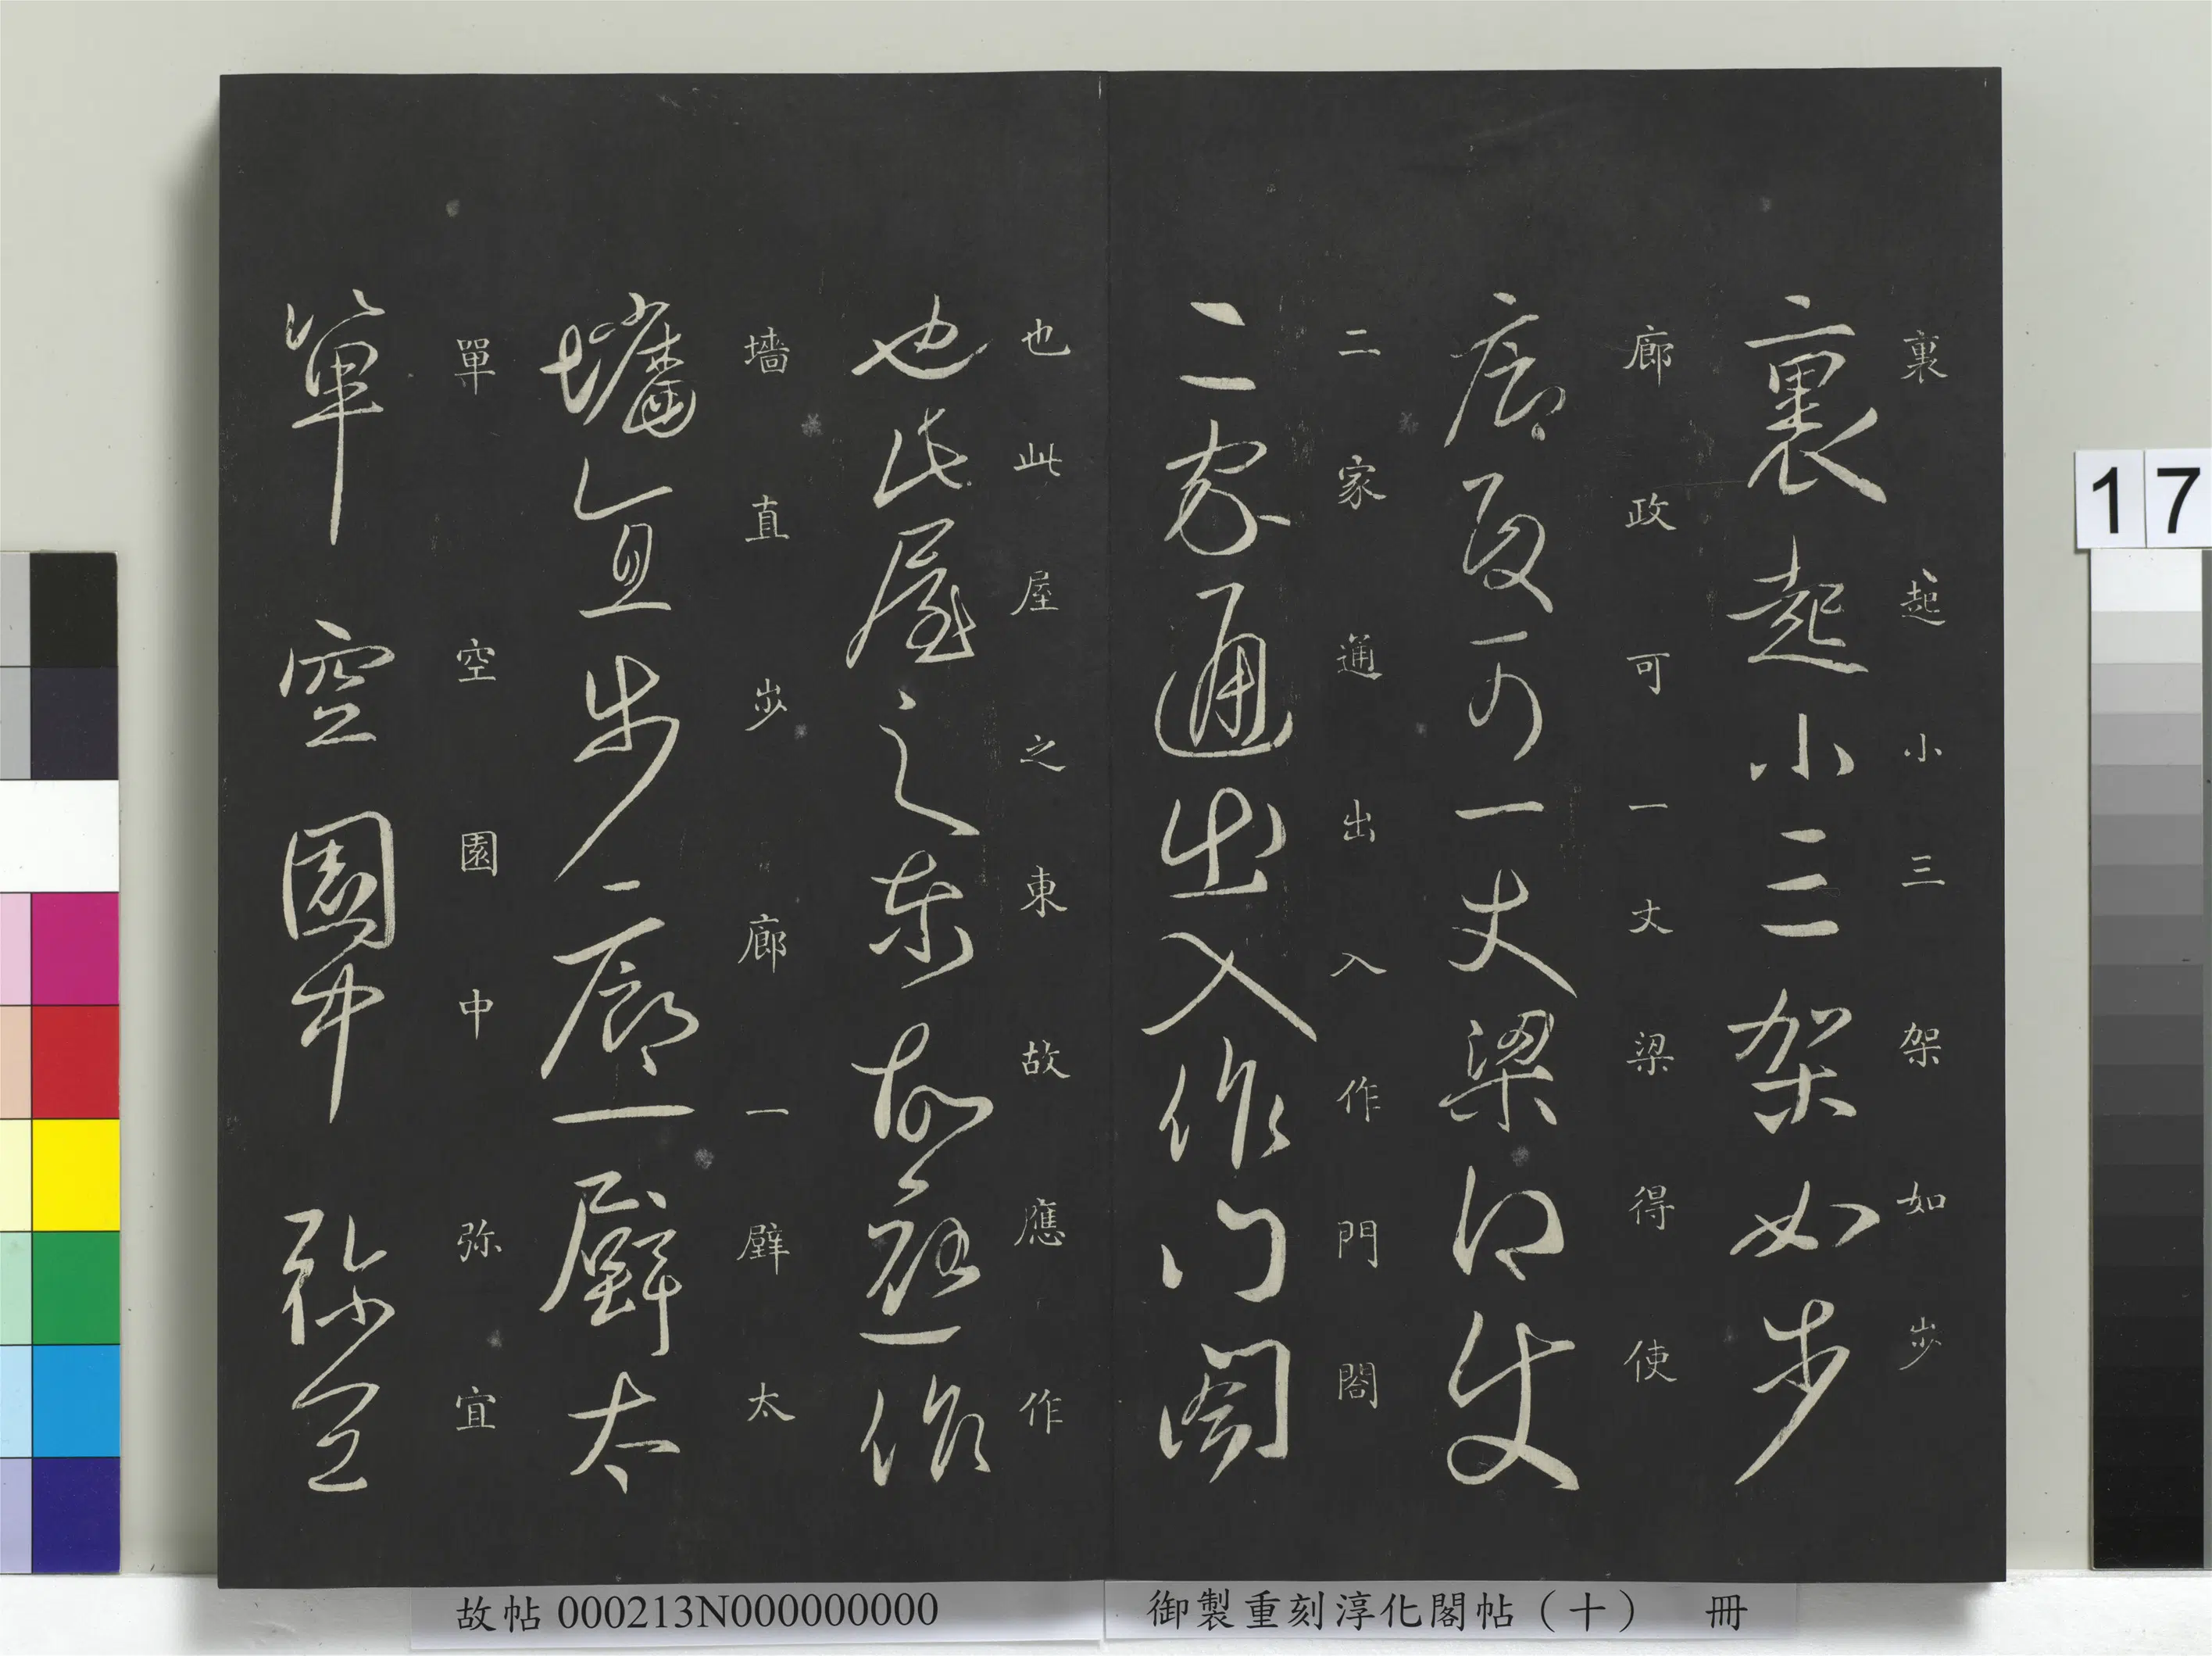 裏起小三架如步
裏起小三架如步
廊政可一丈梁得使
廊政可一丈梁得使
二家通出入作門閤
二家通出入作門閤
也此屋之東故應作
也此屋之東故應作
墻直步廊一壁太
墻直步廊一壁太
單空園中弥宜
單空園中弥宜
17
故帖000213N000000000
御製重刻淳化閣帖（十） 冊